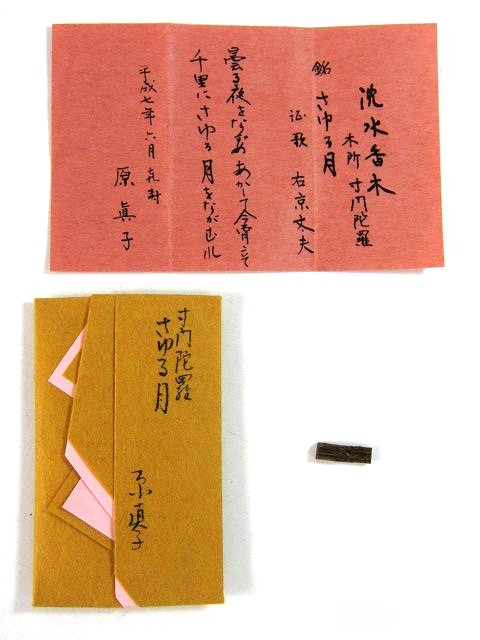 沈水香木
木所 寸門陀羅
銘 さゆる月
証歌 右京大夫
曇る夜をながめあかして今宵こそ
千里にさゆる月をながむれ
平成七年六月
原 眞子
寸門陀羅
さゆる月
原眞子